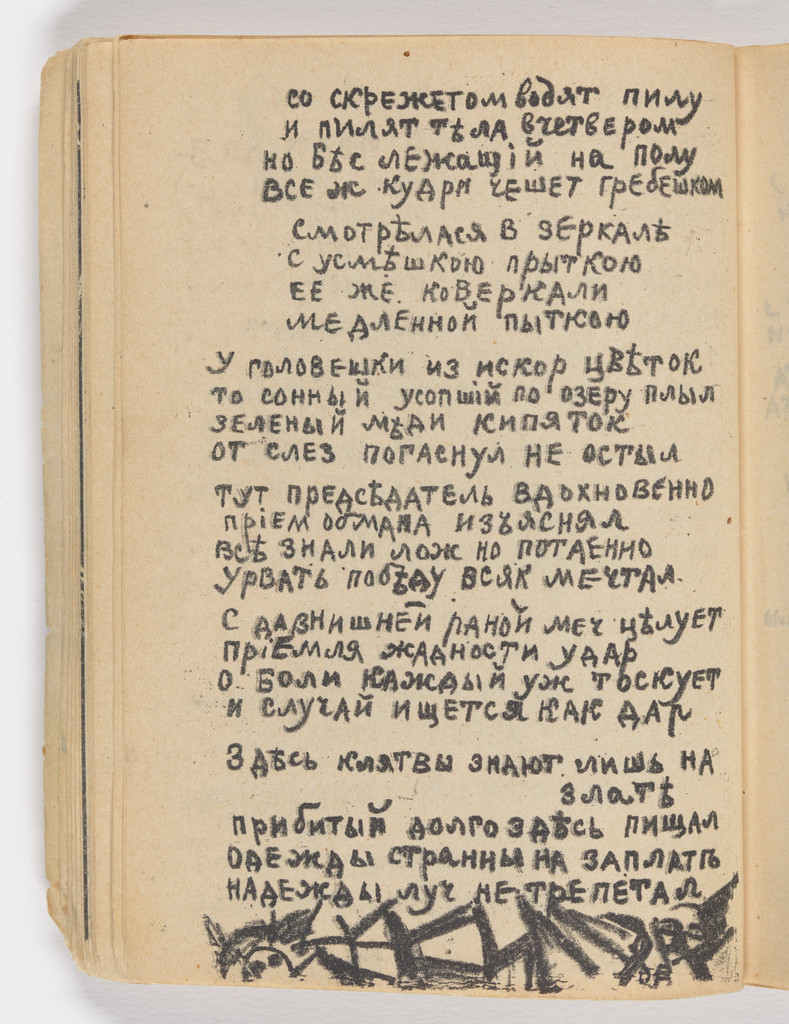 со скрежетом водят пилу
и пилят тѣла вчетвером
но бѣс лежащій на полу
все ж кудри чешет гребешком
смотрѣлася в зеркалѣ
с усмѣшкою прыткою
ее же коверкали
медленной пыткою
У головешки из искор цвѣток
то сонный усопшій по озеру плыл
зеленый мѣди кипяток
от слез погаснул не остыл
тут предсѣдатель вдохновенно
пріем обмана изъяснял
всѣ знали лож но потаенно
урвать побѣду всяк мечтал.
С давнишней раной меч цѣлует
пріемля жадности удар
о боли каждый уж тоскует
и случай ищется как дар
Здѣсь клятвы знают лишь на
златѣ
прибитый долго здѣсь пищал
одежды странны на заплатѣ
надежды луч не трепетал